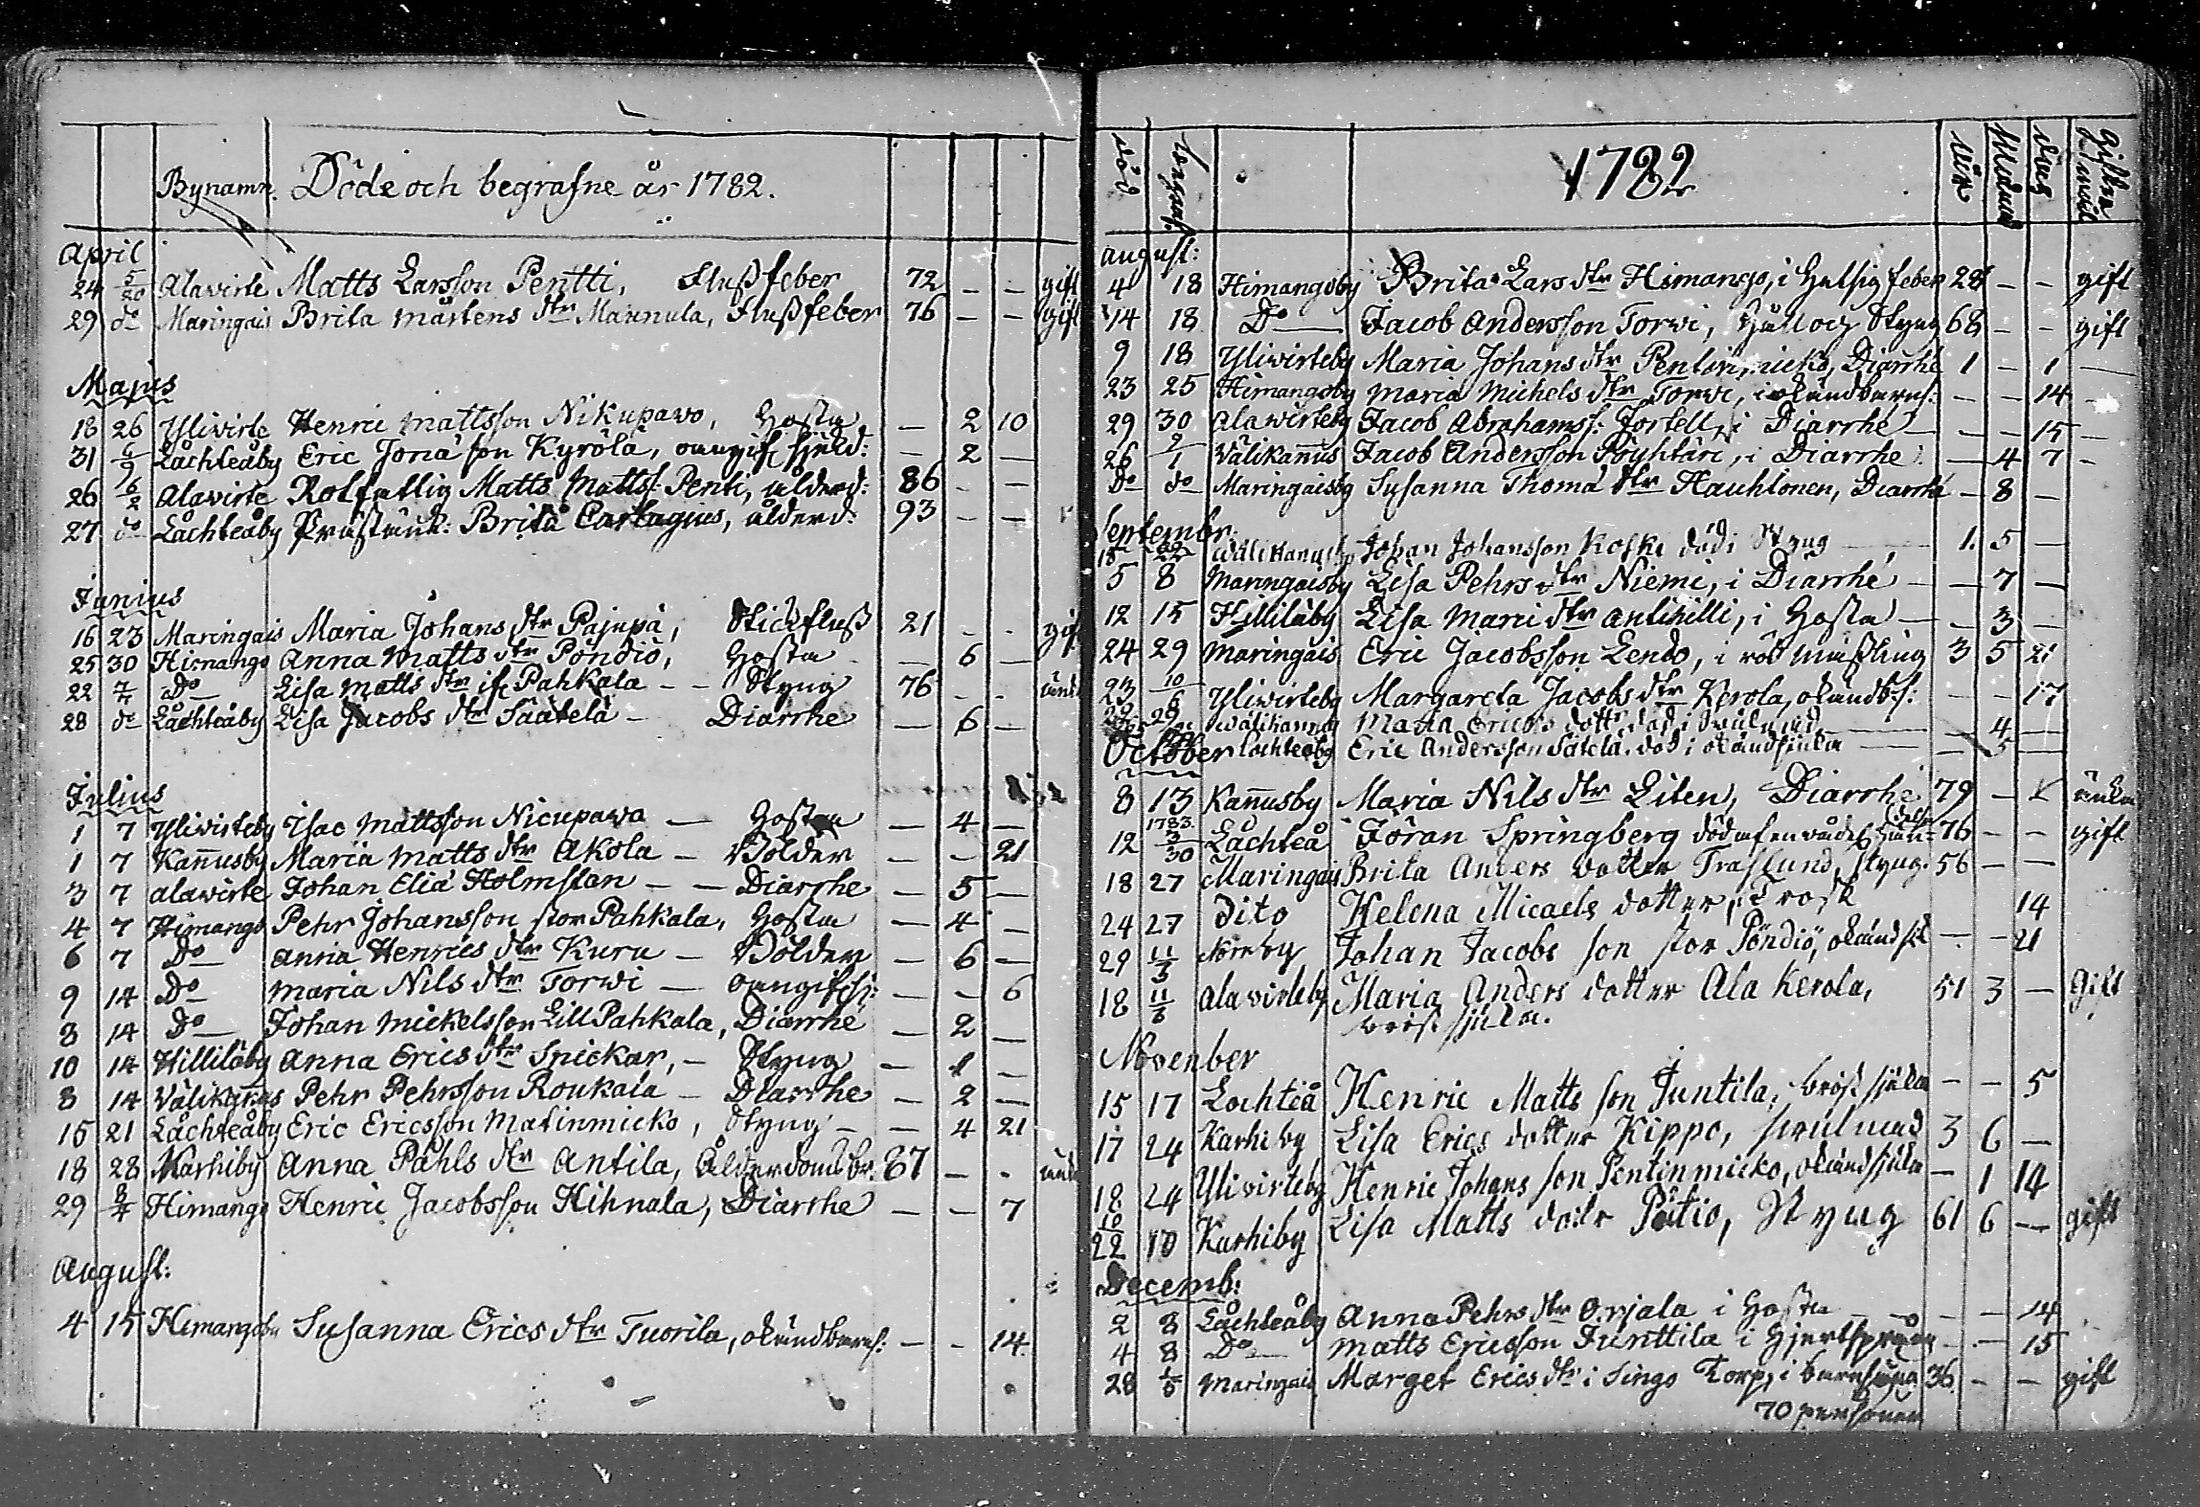 Bynamn. Döde och begrafne år 1782.
April
24 5/20 Alavirte Matts Larsson Pentti, Flußfeber 72 — — gift
29 do Maringais Brita Mårtens dtr Mannula, Flußfeber 76 — — gift
Majus
18 26 Yliwirte Henric Mattsson Nikupawo, Hosta — 2 10
31 6/9 Låchteåby Eric Jona son Kyrölä, oangif: siukd: — 2 —
26 6/2 Alavirte Rotfattig Matts Mattss: Penti, ålderd: 86 — —
27 do Låchteåby Prästänk: Brita Cartagnus, ålderd: 93 — —
Junius
16 23 Maringais Maria Johans dtr Pajupä, Stickfluß 21 — — gift
25 30 Himango Anna Matts dtr Pöndiö, Hosta — 6 —
22 7/7 Do Lisa Matts dtr Pahkala — — Styng 76 — —
28 do Låchteåby Lisa Jacobs dtr Säätelä — Diarrhe — 6 —
Julius
1 7 Yliwirteby Isac Mattsson Nicupawa — Hosta — 4 —
1 7 Kannusby Maria Matts dtr Akola — Bölder — — 21
3 7 Alawirte Johan Elia Holmsten — — Diarrhe — 5 —
4 7 Himango Pehr Johansson stor Pahkala, Hosta — 4 —
6 7 Do Anna Henrics dtr Kuru — Bölder — 6 —
9 14 Do Maria Nils dtr Torwi — oangif: — — 6
8 14 Do Johan Mickelsson Lill Pahkala, Diarrhé — 2 —
10 14 Hilliläby Anna Erics dtr Snickar, — Styng — 1 —
8 14 Välikannus Pehr Pehrsson Roukala — Diarrhe — 2 —
15 21 Låchteåby Eric Ericsson Matinmicko, Styng — — 4 21
18 28 Karhiby Anna Påhls dtr Antila, Ålderdoms br. 87 — —
29 8/4 Himango Henric Jacobsson Hihnala, Diarrhe — — 7
August:
4 15 Himangoby Susanna Erics dtr Tuorila, okändbarns: — — 14.
död begraf. 1782 år Månad dag gifta
August:
4 18 Himangoby Brita Lars dtr Himango, i Hetsig feber 28 — — gift
14 18 Do Jacob Andersson Torwi, Håll och Styng 68 — — gift
9 18 Yliwirteby Maria Johans dtr Pentinmicko, Diarrhé 1 — 1 —
23 25 Himangoby Maria Michels dtr Torwi, i okändbarns: — — 14 —
29 30 Alawirteby Jacob Abrahamss: Fortell, i Diarrhé — — 15 —
26 9/1 Välikannus Jacob Andersson Pöyhtäre, i Diarrhe — 4 7 —
do do Maringaisby Susanna Thoma dtr Hauhtonen, Diarrhé — 8 —
Septembr:
15 22 Wälikanusby Johan Johansson Koski död i Styng — 1. 5 —
5 8 Maringaisby Lisa Pehrs dtr Niemi, i Diarrhé — — 7 —
12 15 Hilliläby Lisa Marci dtr Antihilli, i Hosta — — 3 —
24 29 Maringais Eric Jacobsson Lendo, i röd mäßling 3 5 21
23 10/6 Yliwirteby Margareta Jacobs dtr Kerola, okändb:s: — — 17
29 Wälikannus Maria Erics dotter död i — 4 —
October Lochteåby Eric Andersson Sätelä, död i okändsjuka — 5 —
8 13 Kannusby Maria Nils dtr Liten, Diarrhé 79 —
12 1783. 3/30 Låchteå Jöran Springberg död af en 76 — — gift
18 27 Maringais Brita Anders dotter Traslund, Styng. 56 — —
24 27 Dito Helena Micaels dotter, Trosk 14
29 11/3 Johan Jacobs son stor Pöndiö, okänd sk — — 21
18 11/3 Alawirteby Maria Anders dotter Ala Kerola, 51 3 — Gift
bröst sjuka.
November
15 17 Lochteå Henric Matts son Juntila, bröst sjuka — — 5
17 24 Karhiby Lisa Erics dotter Kippo, 3 6 —
18 24 Yliwirteby Henric Johans son Pentinmicko, okändsjuka — 1 14
10/22 10 Karhiby Lisa Matts dotr Pätio, Styng 61 6 — gift
Decemb:
2 8 Låchteåby Anna Pehrs dtr Orjala i Hosta — — — 14
4 8 Do Matts Ericsson Junttila i Hjertsprång — — 15
28 1/5 Maringais Marget Erics dtr i Singo Torp, i barnsäng 36 — — gift
70 personer